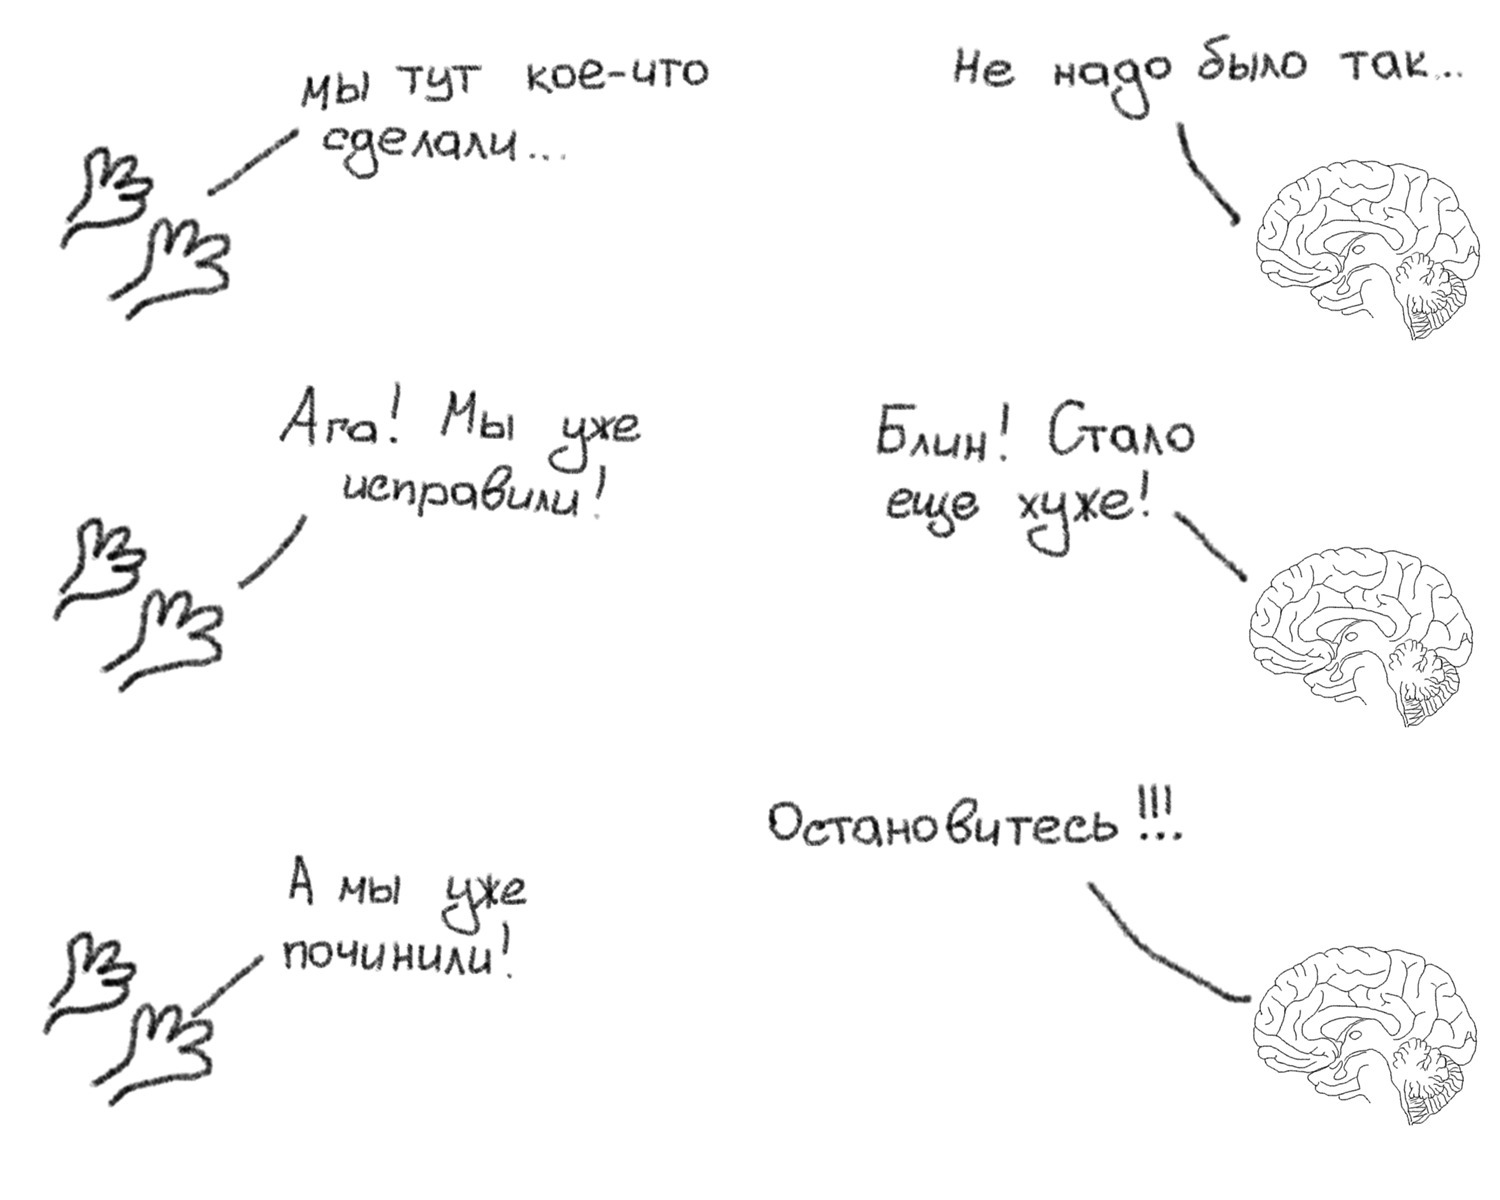 мы тут кое-что
сделали...
Не надо было так...
Ага! Мы уже
исправили!
Блин! Стало
еще хуже!
А мы уже
починили!
Остановитесь!!!